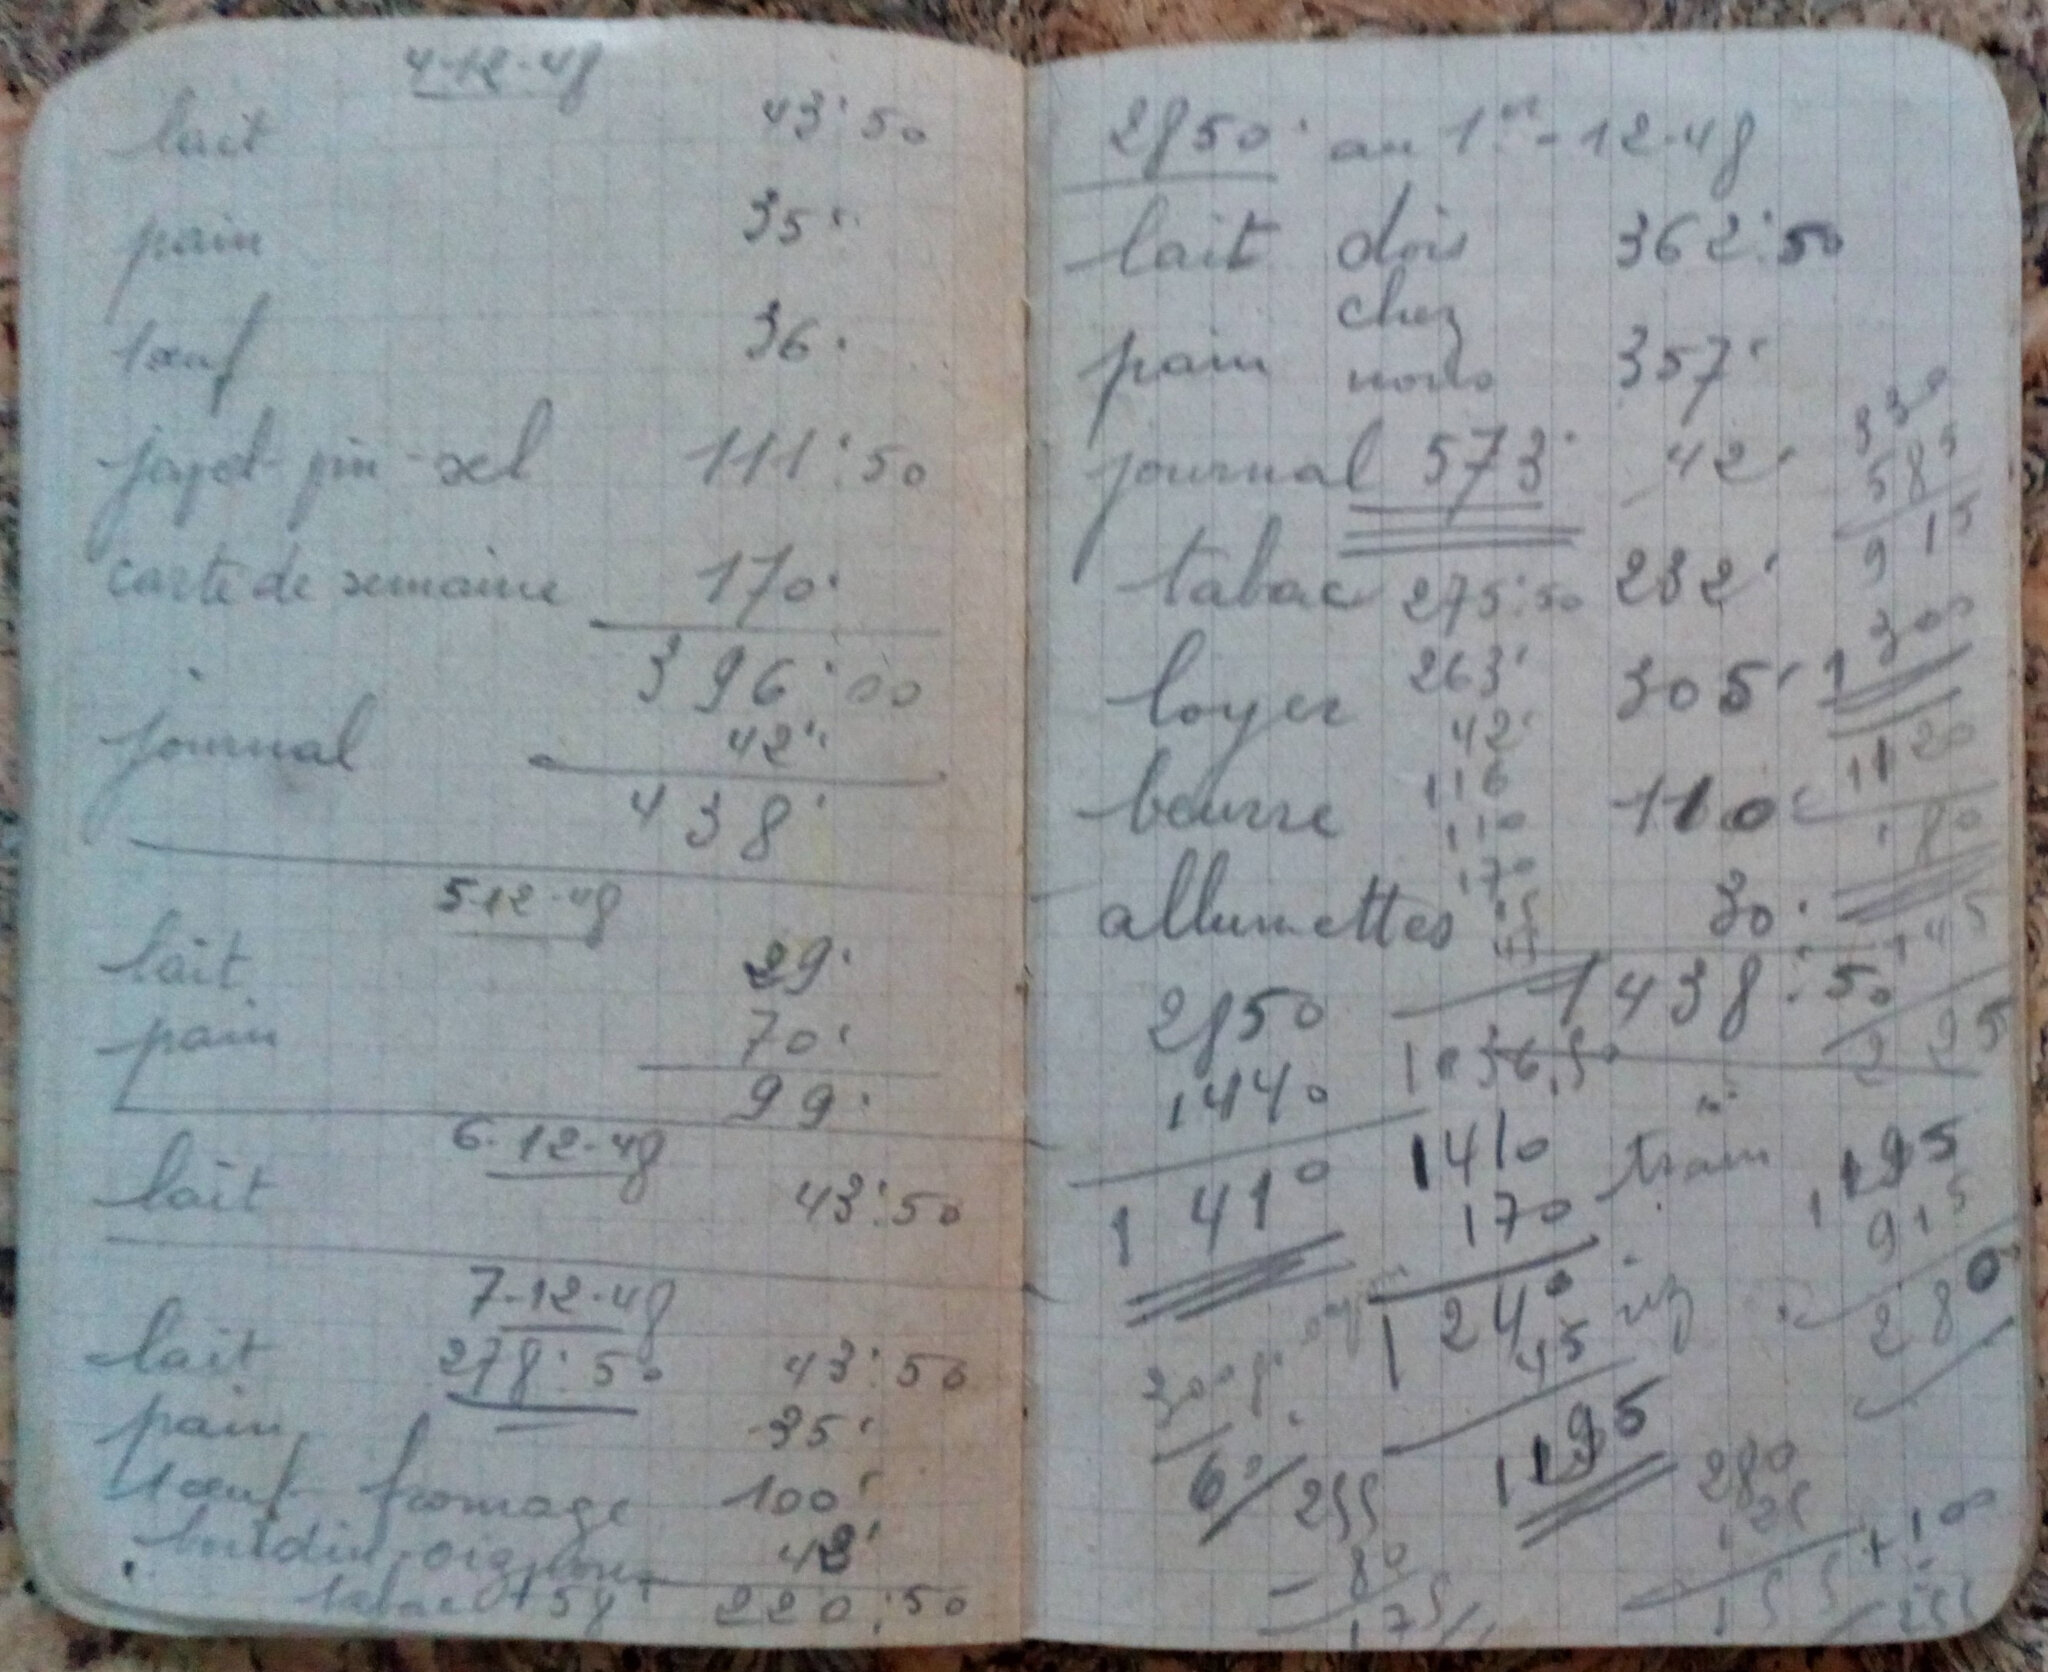 4-12-48
lait 43'50
pain 35'
1 œuf 36'
javel - pin - sel 111'50
carte de semaine 170'
396'00
journal 42'
438'
5-12-48
lait 29'
pain 70'
99'
6-12-48
lait 43'50
7-12-48
lait 278'50 43'50
pain 35'
1 œuf fromage 100'
boudin oignon 42'
tabac + 58' 220'50
2850' au 1er-12-48
lait dois 362'50
chez
pain nous 357'
journal 573' 42'
tabac 275'50 232'
loyer 263' 305'
42'
beurre 116 110'
110
170
allumettes 30'
1438'50
2850
1440
1410
1036,50
1410
170 train
1240
45 riz
1195
330
585
915
300
1120
180
145
2 25
1195
915
280
300gr
60
255
80
175
280
125
155 + 100
255